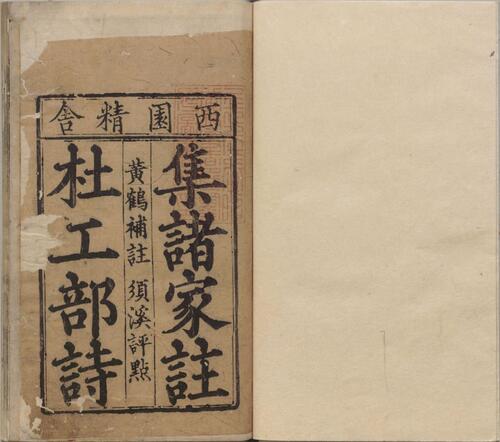 西園精舍
集諸家註
黄鶴補註 須溪評點
杜工部詩